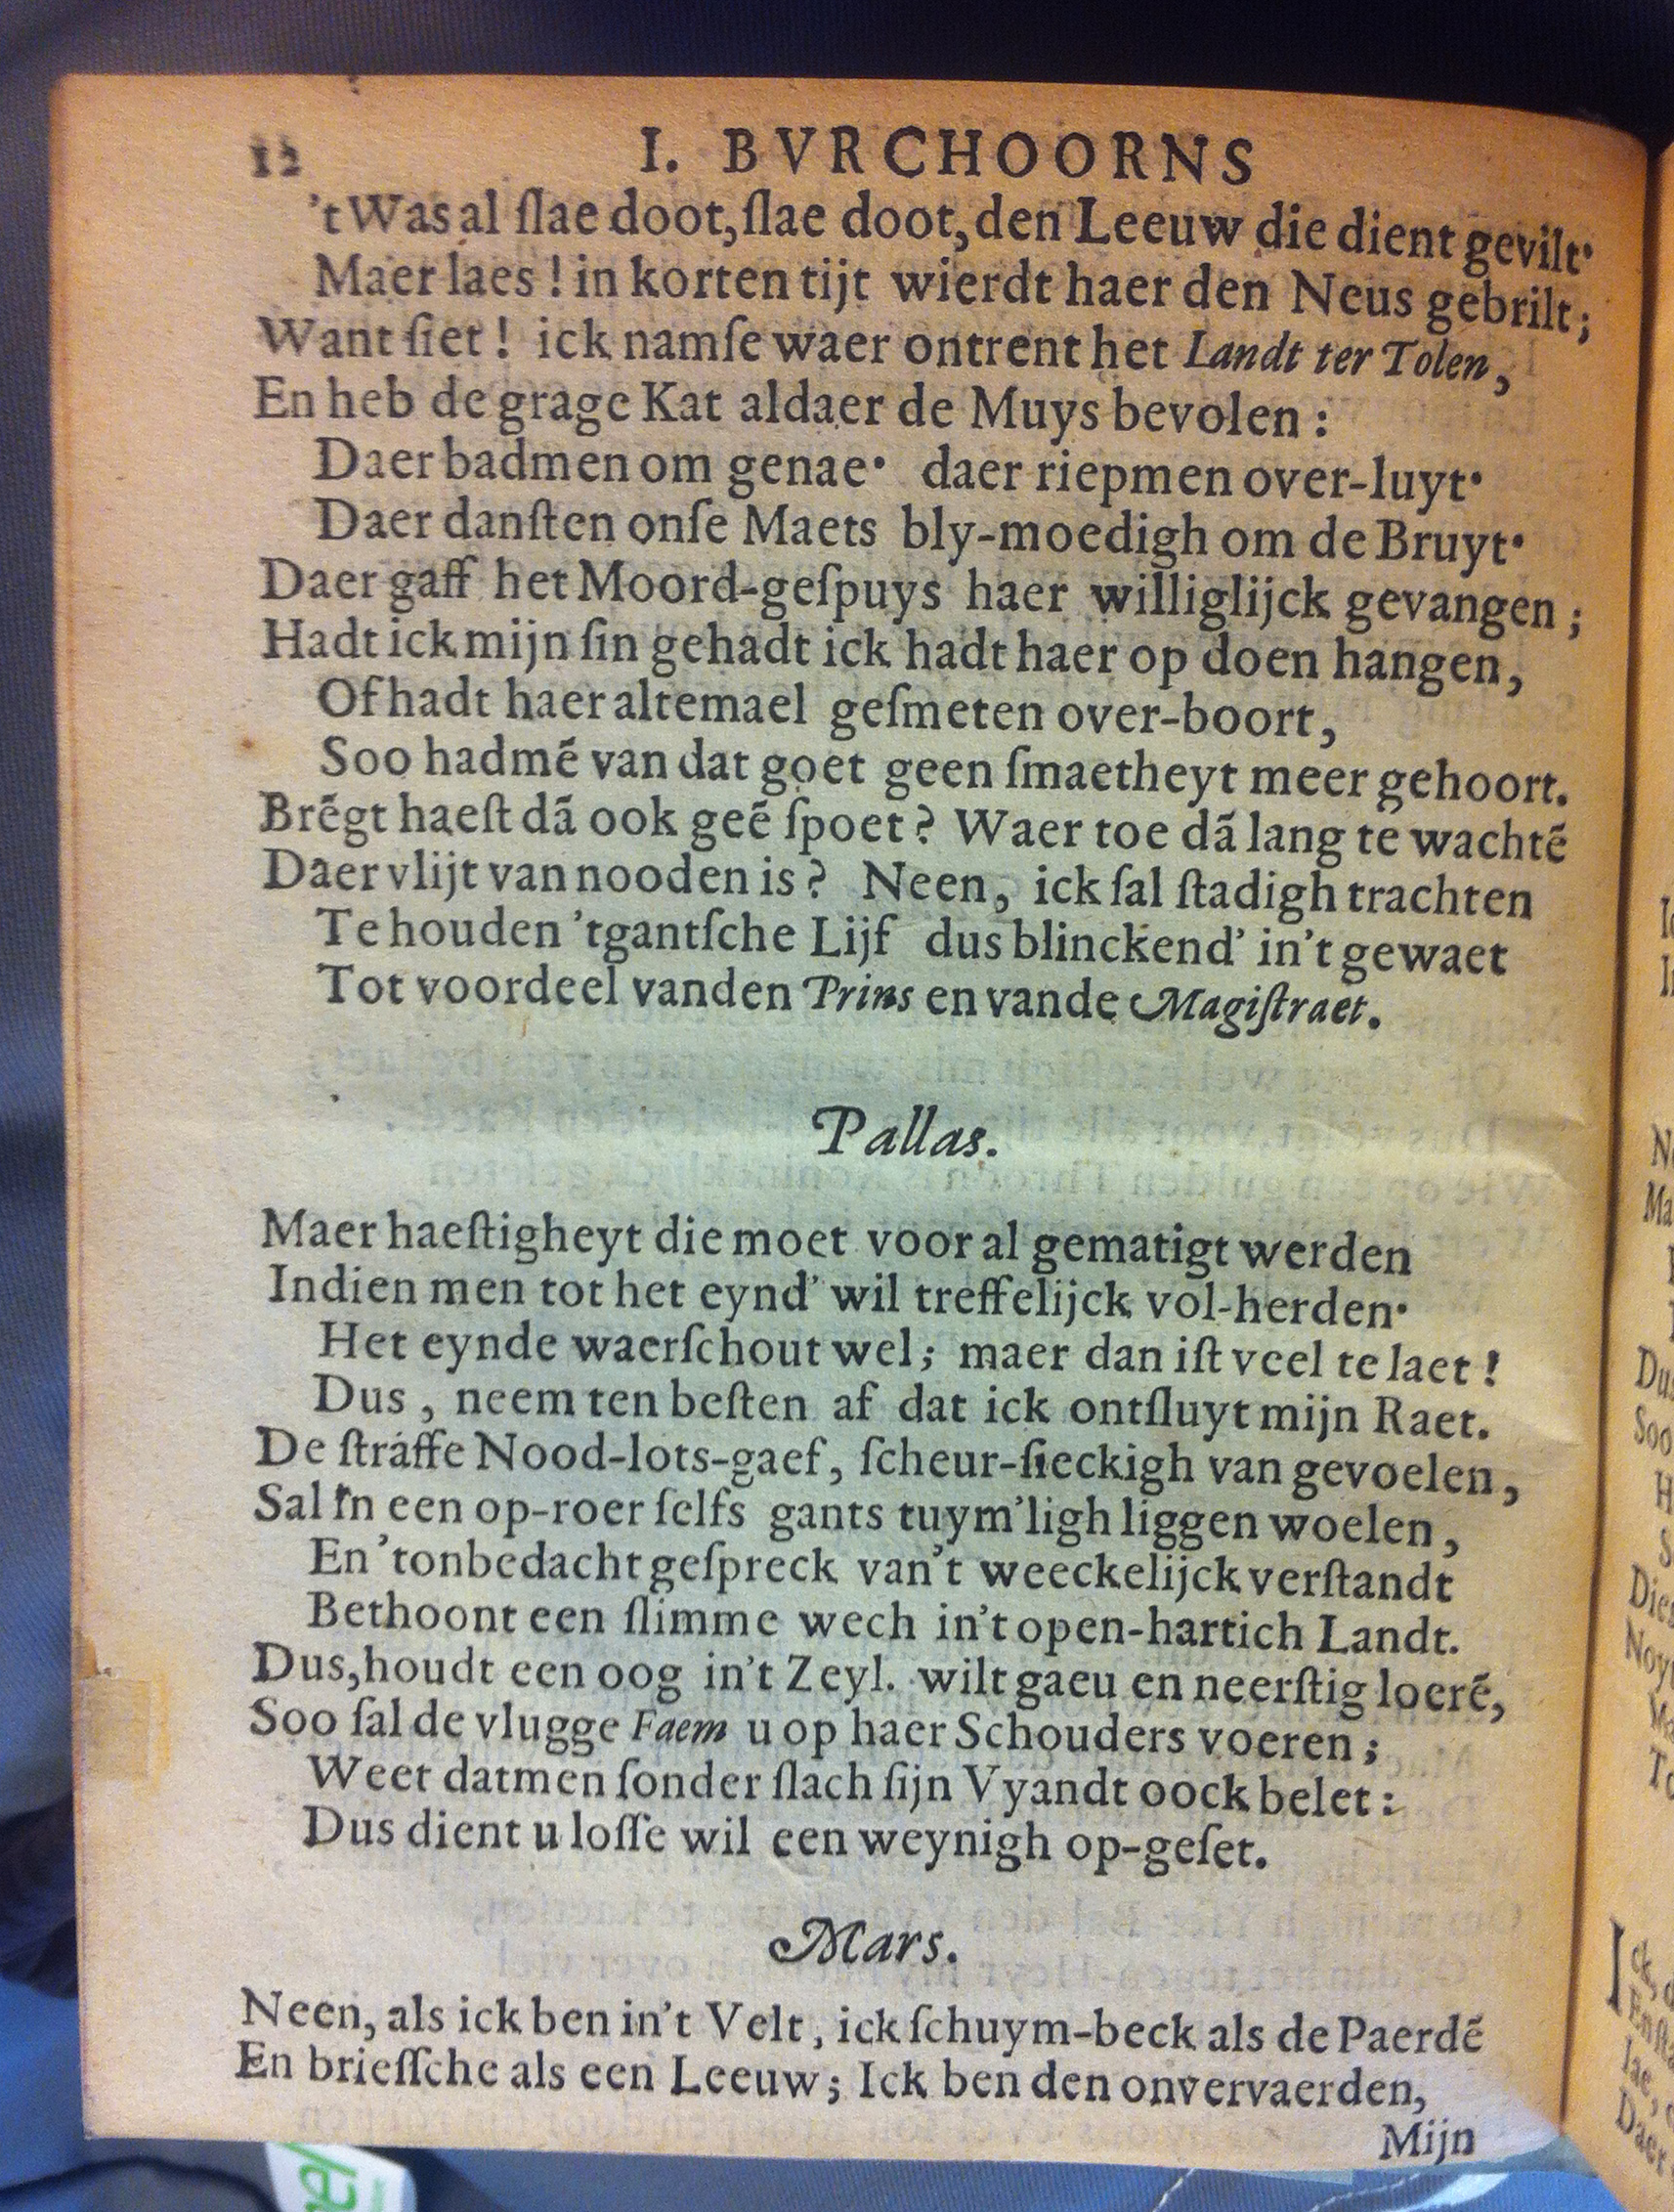 12 I. BVRCHOORNS
't Was al ſlae doot, ſlae doot, den Leeuw die dient gevilt·
Maer laes ! in korten tijt wierdt haer den Neus gebrilt;
Want ſiet ! ick namſe waer ontrent het Landt ter Tolen,
En heb de grage Kat aldaer de Muys bevolen :
Daer badmen om genae· daer riepmen over-luyt·
Daer danſten onſe Maets bly-moedigh om de Bruyt·
Daer gaff het Moord-geſpuys haer williglijck gevangen ;
Hadt ick mijn ſin gehadt ick hadt haer op doen hangen,
Of hadt haer altemael geſmeten over-boort,
Soo hadmē van dat goet geen ſmaetheyt meer gehoort.
Brēgt haeſt dā ook geē ſpoet ? Waer toe dā lang te wachtē
Daer vlijt van nooden is ? Neen, ick ſal ſtadigh trachten
Te houden 'tgantſche Lijf dus blinckend' in't gewaet
Tot voordeel vanden Prins en vande Magiſtraet.
Pallas.
Maer haeſtigheyt die moet voor al gematigt werden
Indien men tot het eynd' wil treffelijck vol-herden·
Het eynde waerſchout wel; maer dan iſt veel te laet !
Dus , neem ten beſten af dat ick ontſluyt mijn Raet.
De ſtraffe Nood-lots-gaef, ſcheur-ſieckigh van gevoelen,
Sal in een op-roer ſelfs gants tuym'ligh liggen woelen,
En 'tonbedacht geſpreck van't weeckelijck verſtandt
Bethoont een ſlimme wech in't open-hartich Landt.
Dus, houdt een oog in't Zeyl. wilt gaeu en neerſtig loerē,
Soo ſal de vlugge Faem u op haer Schouders voeren ;
Weet datmen ſonder ſlach ſijn Vyandt oock belet :
Dus dient u loſſe wil een weynigh op-geſet.
Mars.
Neen, als ick ben in't Velt, ick ſchuym-beck als de Paerdē
En brieſſche als een Leeuw; Ick ben den onvervaerden,
Mijn